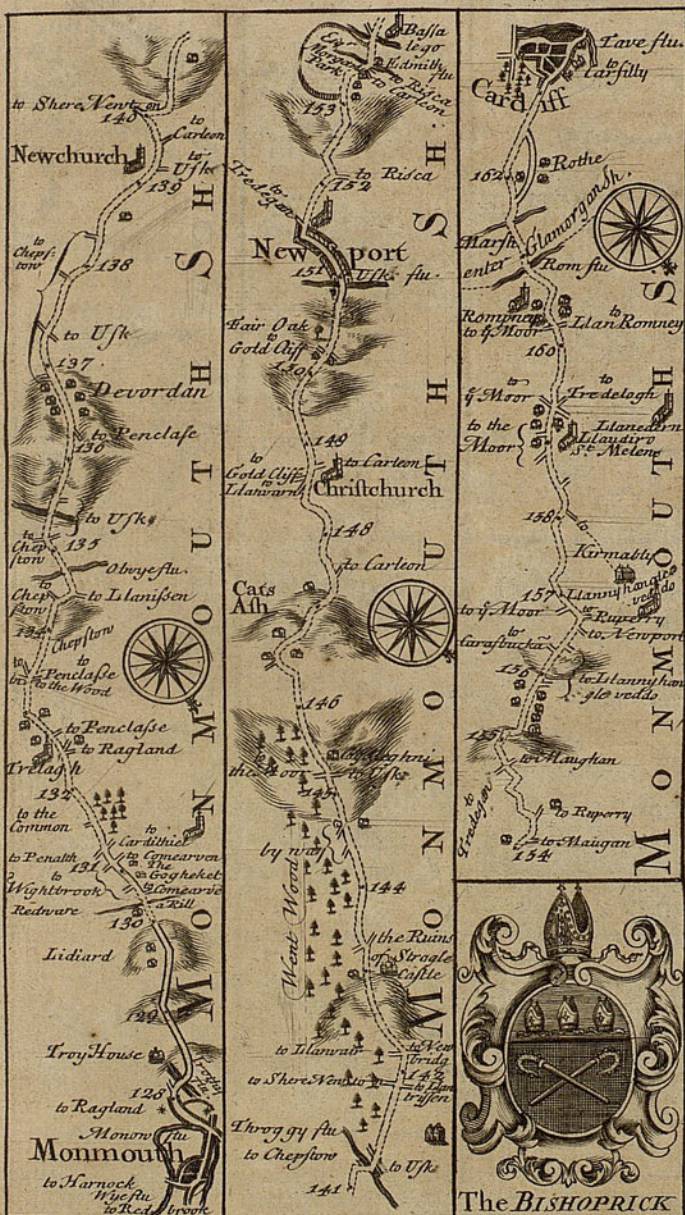 to Shere Newton
140
to
Carleon
Newchurch
to
Usk
139
to
Chepstow
138
to Usk
137
Devordan
to Penclase
136
to Usk
to
Chepston
135
Olwye flu.
to
Chepston
to Llanissen
134
Chepston
to
Penclasse
to the Wood
to Penclasse
to Ragland
Trelagh
132
to the
Common
to
Cardithiel
to Penalth
to Comearvon
131
The
Gogheket
to
Wightbrook
to
Comearve
Redware
a Rill
130
Lidiard
129
Troy House
128
to Ragland
Monow flu
Monmouth
to Harnock
Wye flu
to Redbrook
MONMOUTHSH
Bassa
lego
Esqr
Morgans
Park
Edmith flu
to Risca
to Carleon
153
to
Tredegar
to Risca
152
Newport
151
Usk flu.
Fair Oak
to
Gold Cliff
150
149
to
Gold Cliff
to
Llanvarn
to Carleon
Christchurch
148
to Carleon
Cats
Ash
146
to
the Moor
to Usk
145
by way
144
Went Wood
the Ruins
of Strogle
Castle
to Llanvair
to New
bridg
142
to Shere Newton
to Llan
tryssen
Throggy flu
to Chepstow
to Usk
141
MONMOUTHSH
Tave flu.
to
Carfilly
Cardiff
Rothe
162
Marsh
enter Glamorgansh.
Rom flu
Rompney
to ye Moor
to
Llan Romney
160
to
ye Moor
to
Tredelogh
to the
Moor
Llanedern
Llaudiro
St Melens
158
Kirmably
157
Llannyhangle
veddo
to ye Moor
to
Ruperry
to
to Newport
Carasbucka
156
to Llannyhan
gle veddo
155
to Maughan
to
Tredegar
to Ruperry
to Maugan
154
MONMOUTHS
The BISHOPRICK